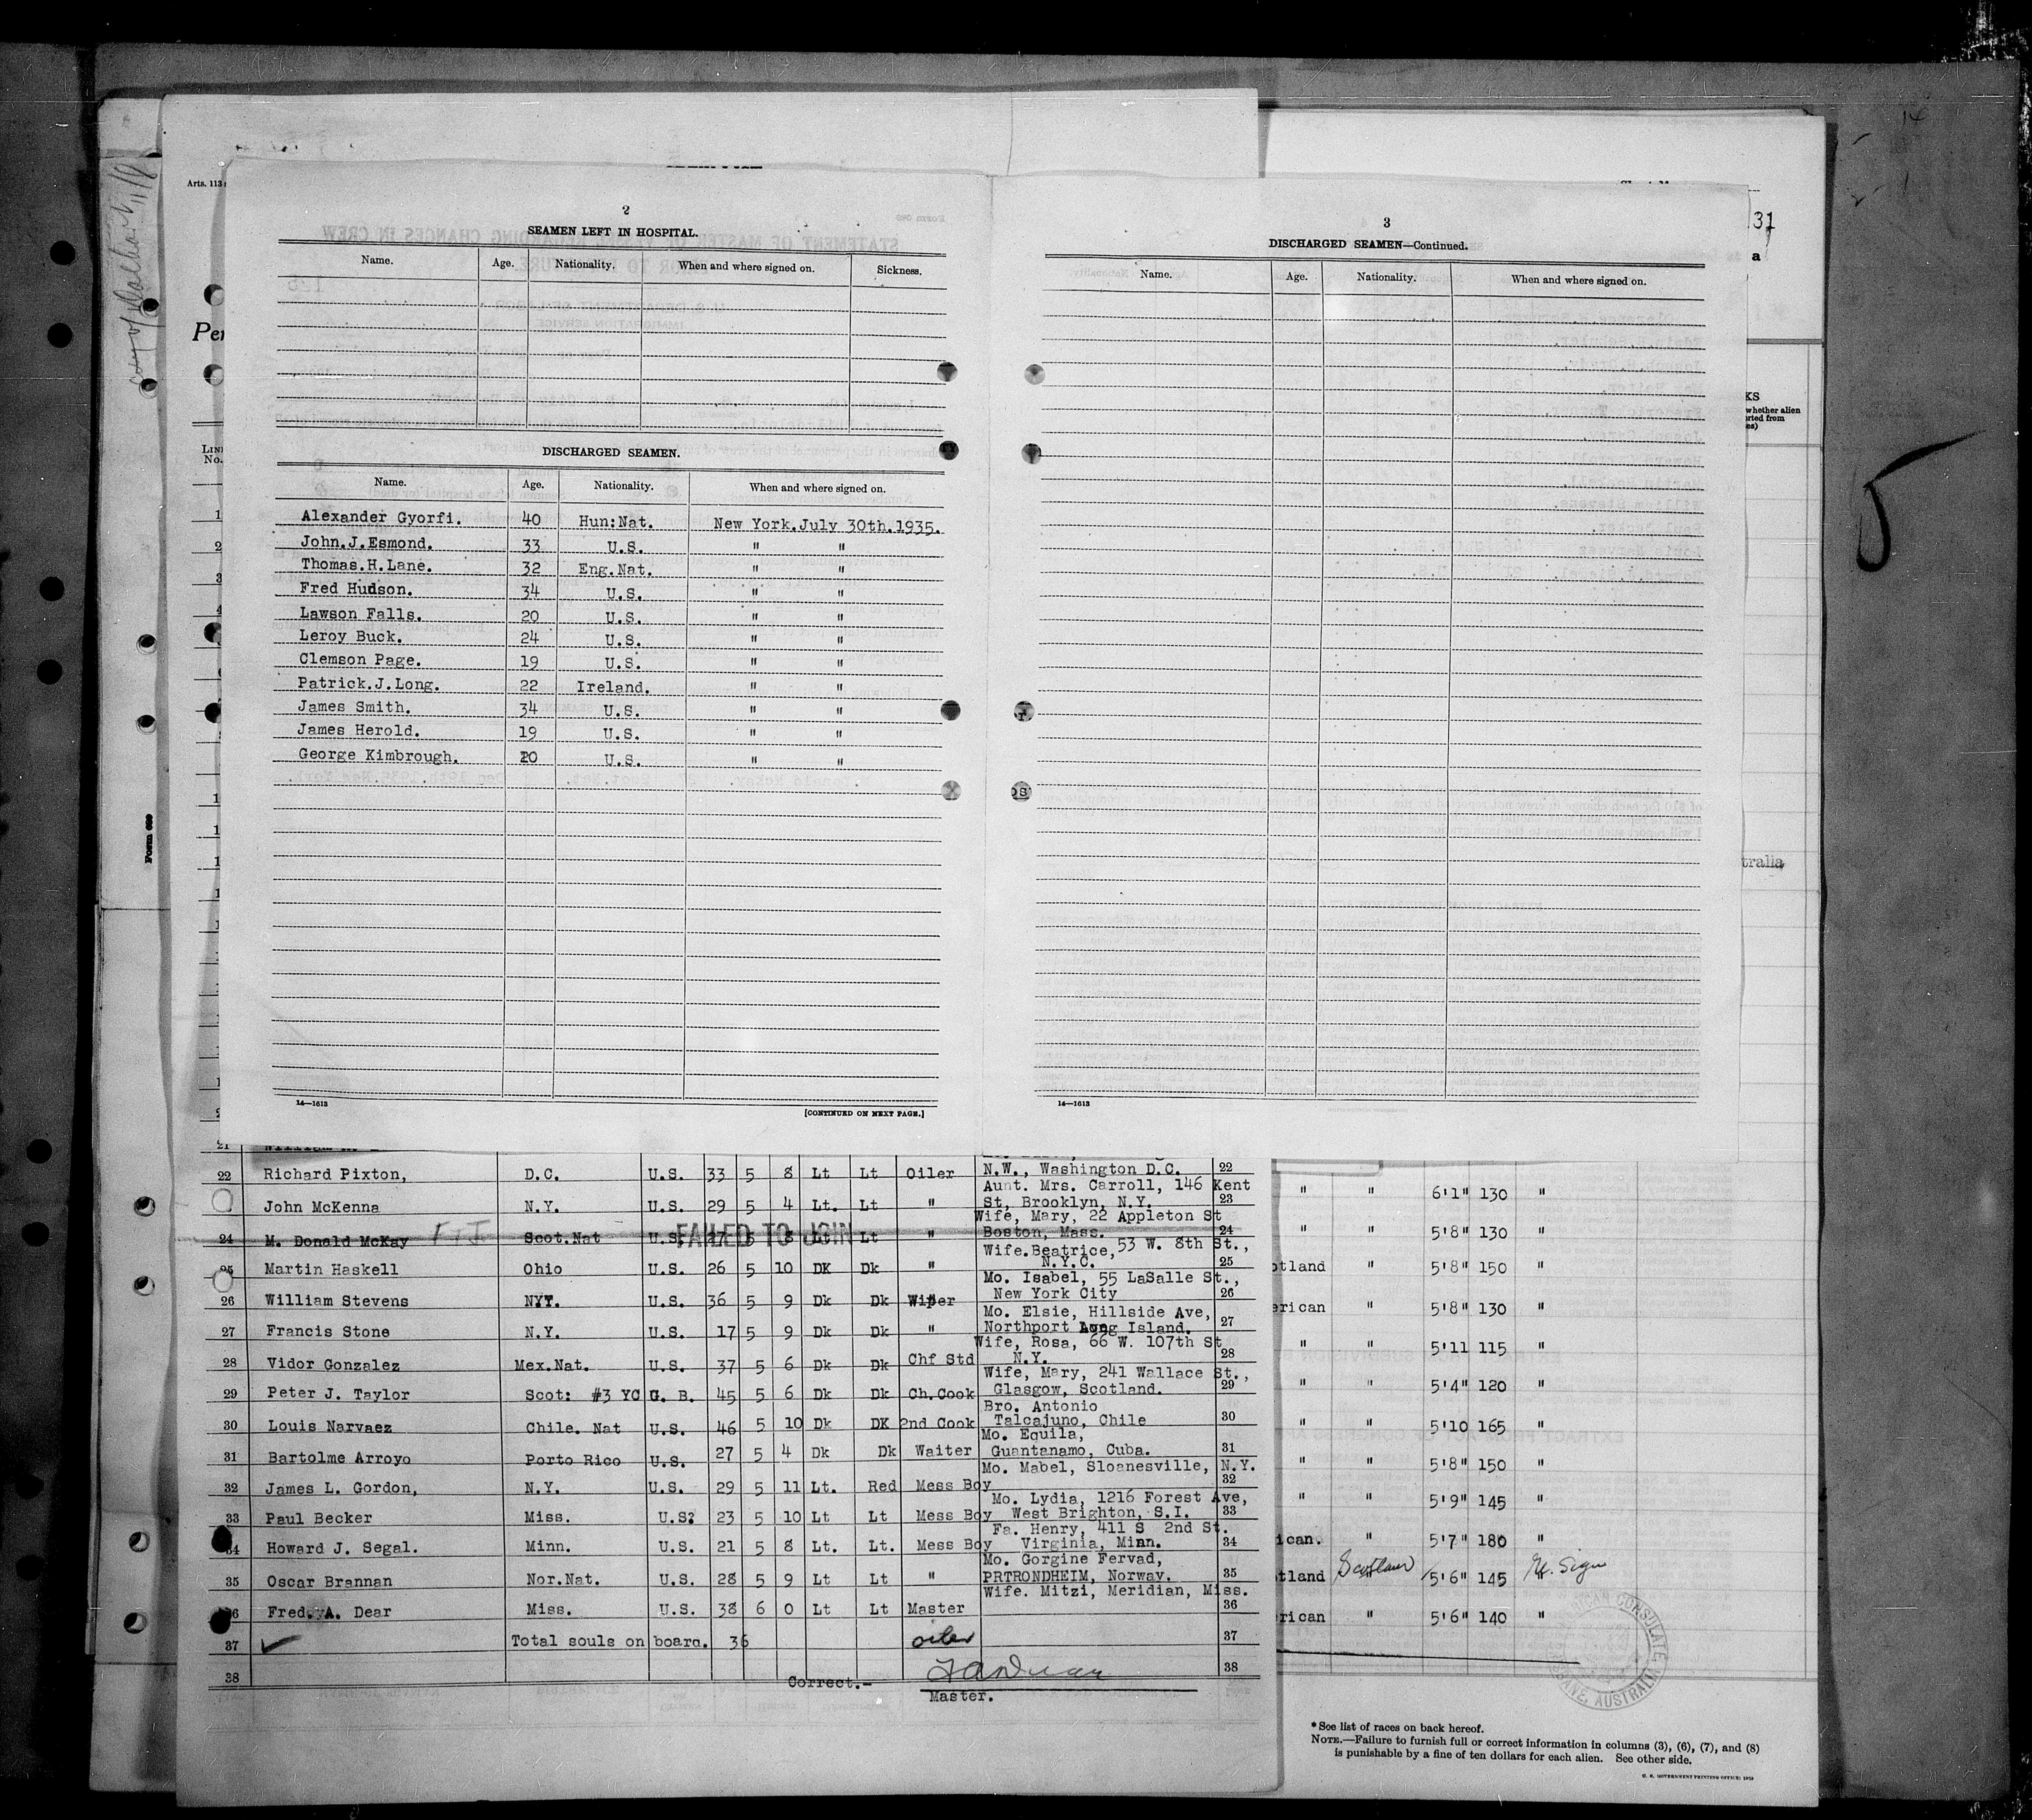 Arts. 113
Per
LINE
No.
2
SEAMEN LEFT IN HOSPITAL.
Name. Age. Nationality. When and where signed on. Sickness.
DISCHARGED SEAMEN.
Name. Age. Nationality. When and where signed on.
Alexander Gyorfi. 40 Hun:Nat. New York.July 30th.1935.
John.J.Esmond. 33 U.S. " "
Thomas.H.Lane. 32 Eng.Nat. " "
Fred Hudson. 34 U.S. " "
Lawson Falls. 20 U.S. " "
Leroy Buck. 24 U.S. " "
Clemson Page. 19 U.S. " "
Patrick.J.Long. 22 Ireland. " "
James Smith. 34 U.S. " "
James Herold. 19 U.S. " "
George Kimbrough. 20 U.S. " "
14—1613
[CONTINUED ON NEXT PAGE.]
3
DISCHARGED SEAMEN—Continued.
Name. Age. Nationality. When and where signed on.
14—1613
131
a
KS
whether alien
rted from
es)
tralia
Form 689
21
22 Richard Pixton, D.C. U.S. 33 5 8 Lt Lt Oiler N.W., Washington D.C. 22
Aunt. Mrs. Carroll, 146 Kent
John McKenna N.Y. U.S. 29 5 4 Lt. Lt " St, Brooklyn, N.Y. 23
Wife, Mary, 22 Appleton St
24 M. Donald McKay FTJ Scot.Nat U.S. 27 5 8 Lt Lt " Boston, Mass. 24
FAILED TO JOIN
Wife.Beatrice, 53 W. 8th St.,
25 Martin Haskell Ohio U.S. 26 5 10 DK Dk " N.Y.C. 25
Mo. Isabel, 55 LaSalle St.,
26 William Stevens NYY. U.S. 36 5 9 Dk Dk Wiper New York City 26
Mo. Elsie, Hillside Ave,
27 Francis Stone N.Y. U.S. 17 5 9 Dk Dk " Northport Long Island. 27
Wife, Rosa, 66 W. 107th St
28 Vidor Gonzalez Mex.Nat. U.S. 37 5 6 Dk Dk Chf Std N.Y. 28
Wife, Mary, 241 Wallace St.,
29 Peter J. Taylor Scot: #3 YC G. B. 45 5 6 Dk Dk Ch.Cook Glasgow, Scotland. 29
Bro. Antonio
30 Louis Narvaez Chile. Nat U.S. 46 5 10 Dk DK 2nd Cook Talcajuno, Chile 30
Mo. Equila,
31 Bartolme Arroyo Porto Rico U.S. 27 5 4 Dk Dk Waiter Guantanamo, Cuba. 31
Mo. Mabel, Sloanesville, N.Y.
32 James L. Gordon, N.Y. U.S. 29 5 11 Lt. Red Mess Boy 32
Mo. Lydia, 1216 Forest Ave,
33 Paul Becker Miss. U.S? 23 5 10 Lt Lt Mess Boy West Brighton, S.I. 33
Fa. Henry, 411 S 2nd St.
34 Howard J. Segal. Minn. U.S. 21 5 8 Lt. Lt. Mess Boy Virginia, Minn. 34
Mo. Gorgine Fervad,
35 Oscar Brannan Nor.Nat. U.S. 28 5 9 Lt Lt " PRTRONDHEIM, Norway. 35
Wife. Mitzi, Meridian, Miss.
36 Fred. A. Dear Miss. U.S. 38 6 0 Lt Lt Master 36
37 Total souls on board. 36 oiler 37
38 Correct.- 38
Master.
" " 6'1" 130 "
" " 5'8" 130 "
otland " 5'8" 150 "
erican " 5'8" 130 "
" " 5'11 115 "
" " 5'4" 120 "
" " 5'10 165 "
" " 5'8" 150 "
" " 5'9" 145 "
ican. " 5'7" 180 "
tland Scotland 5'6" 145
rican " 5'6" 140 "
AMERICAN CONSULATE
BRISBANE, AUSTRALIA
*See list of races on back hereof.
NOTE.—Failure to furnish full or correct information in columns (3), (6), (7), and (8)
is punishable by a fine of ten dollars for each alien. See other side.
U. S. GOVERNMENT PRINTING OFFICE:
5